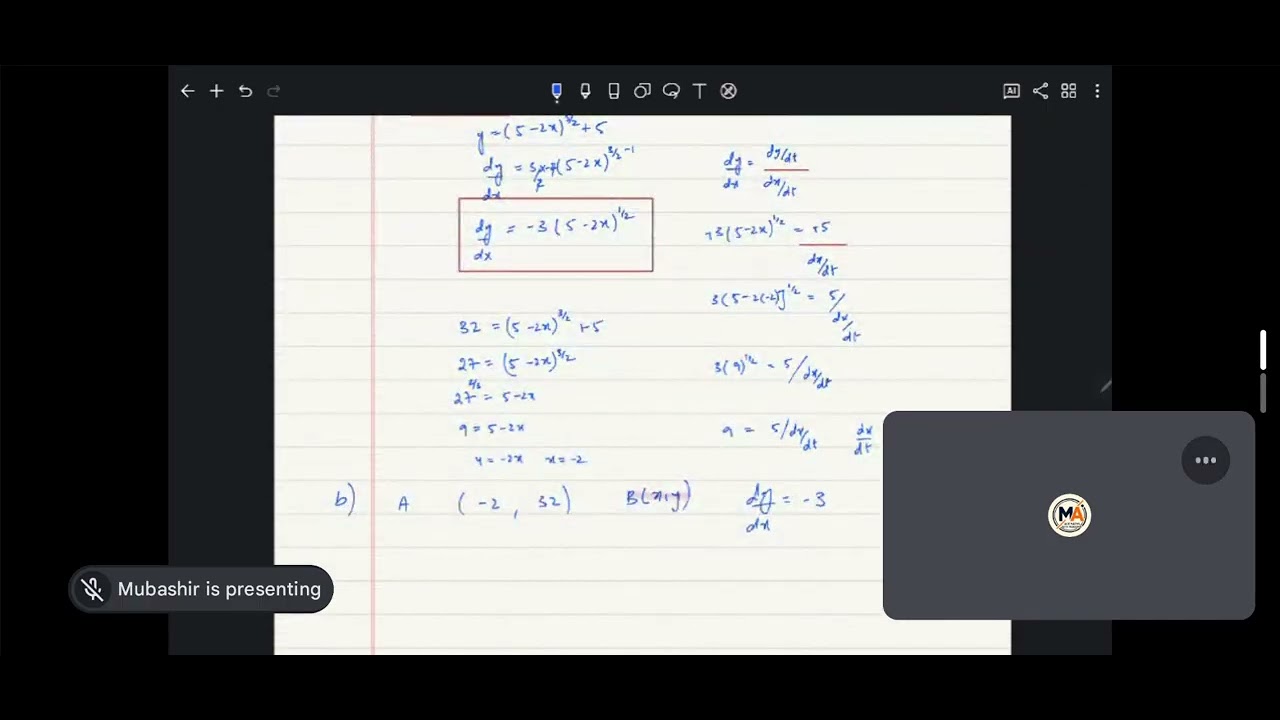 AI
y = (5-2x)^3/2 + 5
dy/dx = (5-2x)^3/2 -1
dy/dx = -3 (5-2x)^1/2
32 = (5-2x)^3/2 + 5
27 = (5-2x)^3/2
27^2/3 = 5-2x
9 = 5-2x
4 = -2x x = -2
dy/dx = dy/dt / dx/dt
+3(5-2x)^1/2 = +5 / dx/dt
3(5-2(-2))^1/2 = 5 / dx/dt
3(9)^1/2 = 5 / dx/dt
9 = 5 / dx/dt dx/dt
b) A (-2, 32) B(x,y) dy/dx = -3
Mubashir is presenting
MA